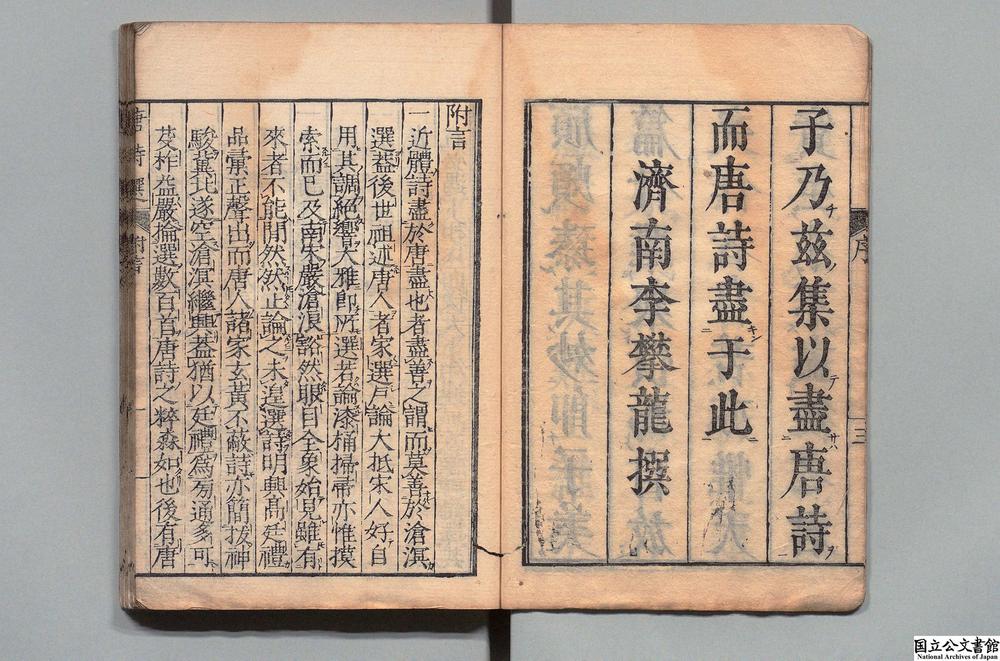 子乃茲集以盡唐詩
而唐詩盡于此
濟南李攀龍撰
序
三
附言
一近體詩盡於唐盡也者盡善之謂而莫善於滄溟
選蓋後世祖述唐人者家選戶論大抵宋人好自
用其調絕響大雅即所選若論漆桶掃帚亦惟摸
索而已及南宋嚴滄浪豁然眼目全象始見雖有
來者不能間然然止論之未遑選詩明興高廷禮
品彙正聲出而唐人諸家玄黃不蔽詩亦簡拔神
駿冀北遂空滄溟繼興蓋猶以廷禮為旁通多可
芟柞益嚴掄選數百首唐詩之粹森如也後有唐
唐詩選
附言
一
国立公文書館
National Archives of Japan